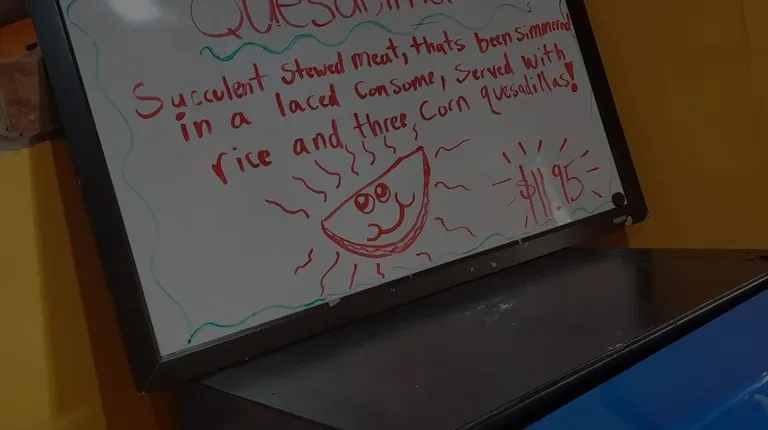 Succulent stewed meat, thats been simmered
in a laced Consome, Served with
rice and three Corn quesadillas!
$11.95